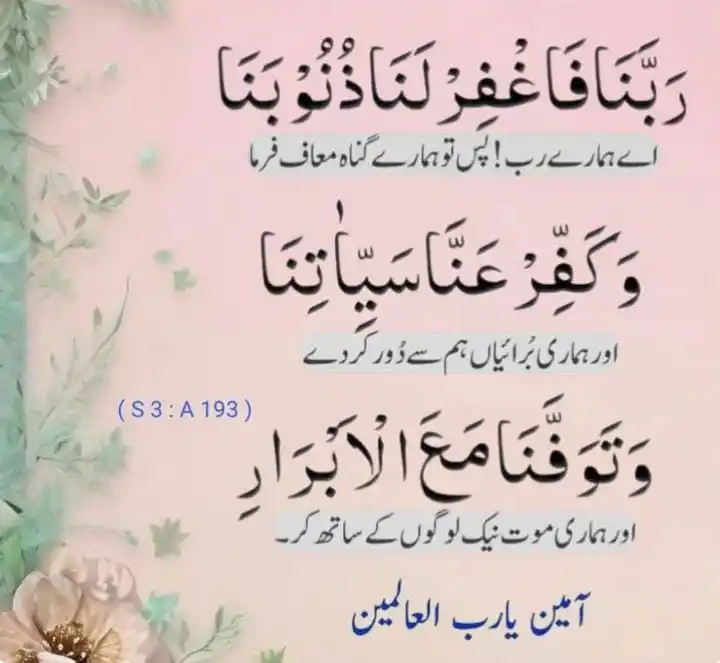 رَبَّنَا فَاغْفِرْ لَنَا ذُنُوْبَنَا
اے ہمارے رب! پس تو ہمارے گناہ معاف فرما
وَ كَفِّرْ عَنَّا سَيِّاٰتِنَا
اور ہماری بُرائیاں ہم سے دُور کر دے
(S 3 : A 193)
وَ تَوَفَّنَا مَعَ الْاَبْرَارِ
اور ہماری موت نیک لوگوں کے ساتھ کر۔
آمین یارب العالمین